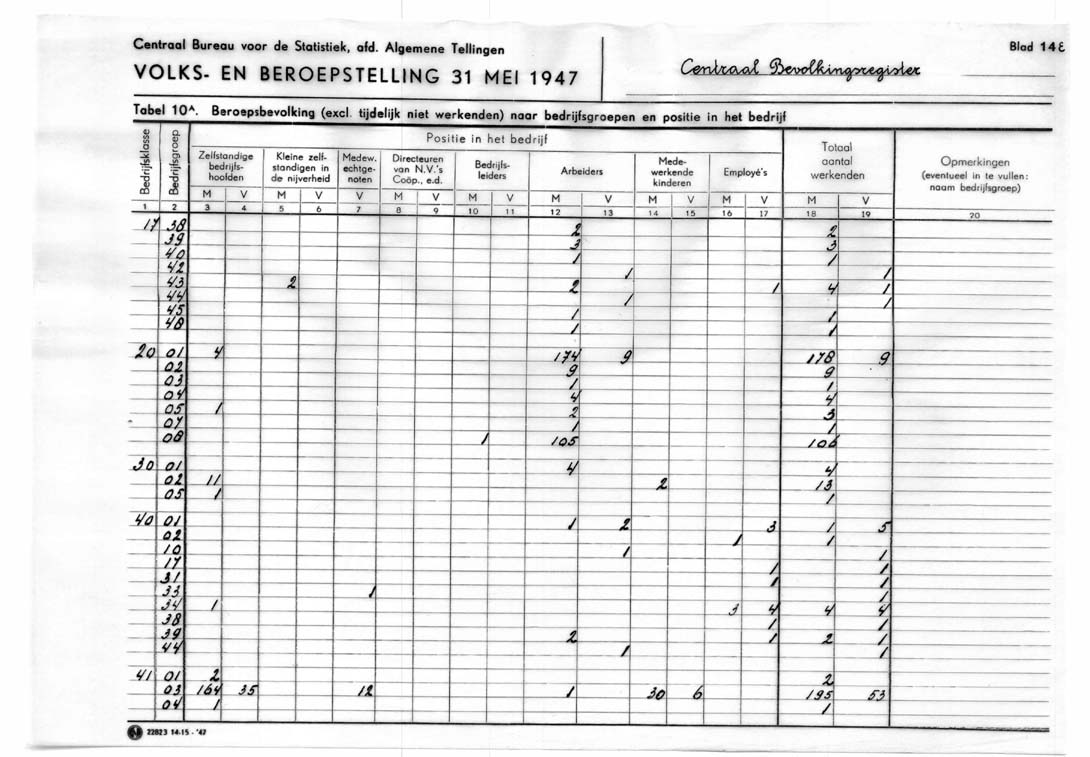 Centraal Bureau voor de Statistiek, afd. Algemene Tellingen
Blad 14
VOLKS- EN BEROEPSTELLING 31 MEI 1947
Centraal Bevolkingsregister
Tabel 10A. Beroepsbevolking (excl. tijdelijk niet werkenden) naar bedrijfsgroepen en positie in het bedrijf
Bedrijfsklasse
Bedrijfsgroep
Positie in het bedrijf
Zelfstandige bedrijfs-hoofden
Kleine zelf-standigen in de nijverheid
Medew. echtge-noten
Directeuren van N.V.'s Coöp., e.d.
Bedrijfs-leiders
Arbeiders
Mede-werkende kinderen
Employé's
Totaal aantal werkenden
Opmerkingen (eventueel in te vullen: naam bedrijfsgroep)
M V M V V M V M V M V M V M V M V
1 2 3 4 5 6 7 8 9 10 11 12 13 14 15 16 17 18 19 20
17 38 2 2
39 3 3
40 1 1
42 1 1
43 2 2 1 4 1
44 1 1
45 1 1
48 1 1
20 01 4 174 9 178 9
02 9 9
03 1 1
04 4 4
05 1 2 3
07 1 1
08 1 105 106
30 01 4 4
02 11 2 13
05 1 1
40 01 1 2 3 1 5
02 1 1
10 1 1
17 1 1
31 1 1
33 1 1
34 1 3 4 4 4
38 1 1
39 2 1 2 1
44 1 1
41 01 2 2
03 164 35 12 1 30 6 195 53
04 1 1
22823 14-15 - '47